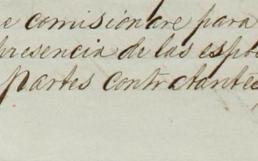 e comisionare para
presencia de las espre
partes contratantes